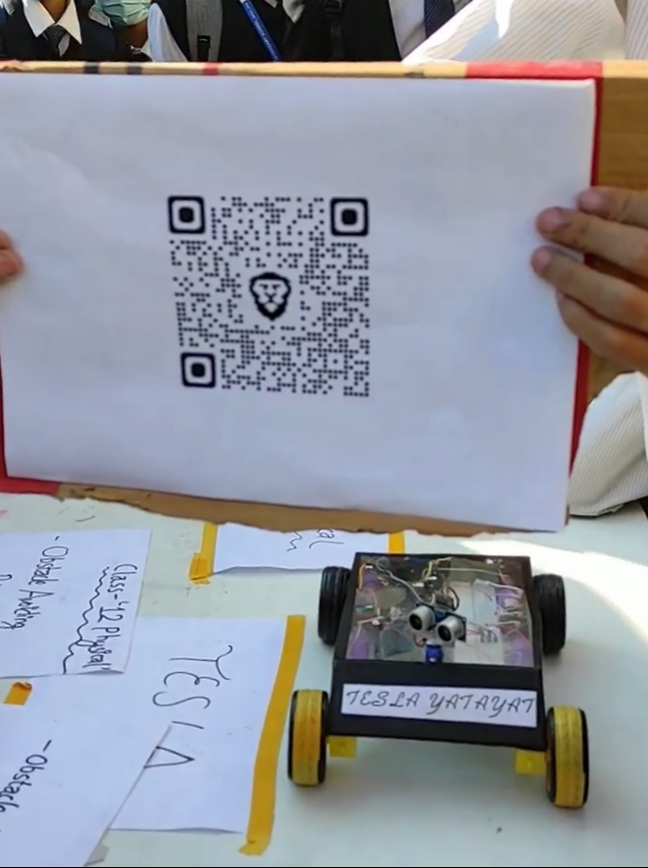 Class - '12 Physical'
- Obstacle Avoiding
TESLA
- Obstacle
TESLA YATAYAT